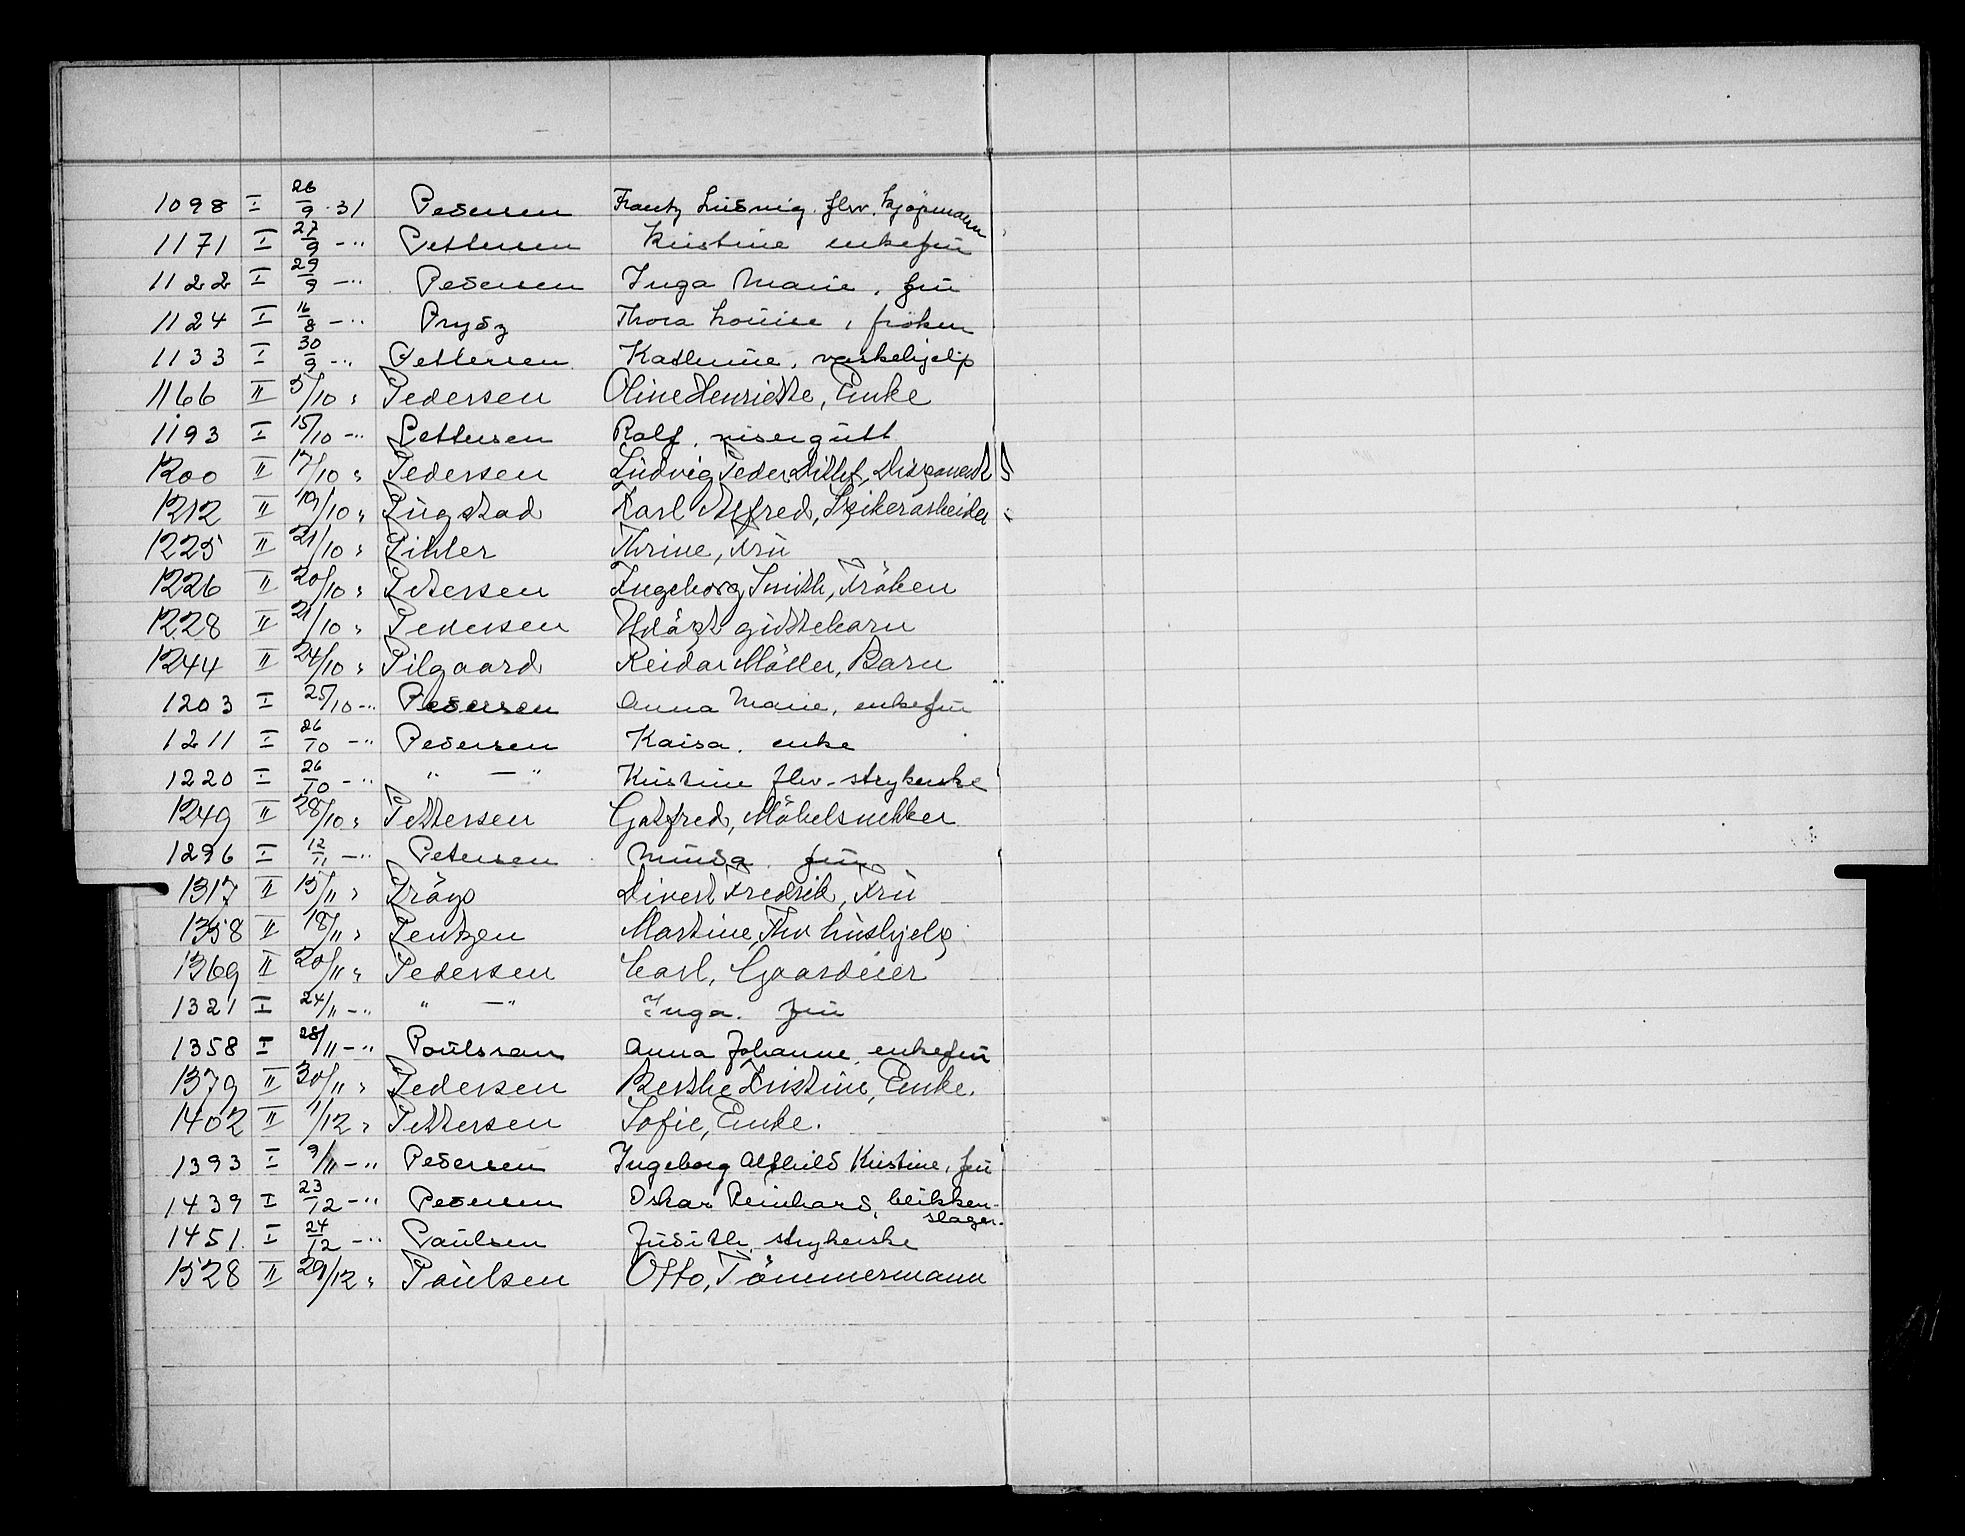 1098 I 26/9 31 Pedersen Frantz Ludvig. fhv. kjøpmann
1171 I 27/9 -"- Pettersen Kristine enkefrü
1122 I 29/9 -"- Pedersen Inga Marie, frü
1124 I 16/8 -"- Prydz Thora Louise, frøken
1133 I 30/9 -"- Pettersen Kathrine, vaskehjelp
1166 II 5/10 " Pedersen Oline Henriette, Enke
1193 I 15/10 -"- Pettersen Rolf, visergütt
1200 II 17/10 " Pedersen Lüdvig Peder Ditlef, Disponent
1212 II 19/10 " Püngstad Karl Alfred, Spikerarbeider
1225 II 21/10 " Pihler Thrine, Frü
1226 II 20/10 " Petersen Ingeborg Smith, Fröken
1228 II 21/10 " Pedersen Udöpt güttebarn
1244 II 24/10 " Pilgaard Reidar Möller, Barn
1203 I 25/10 -"- Pedersen Anna Marie, enkefrü
1211 I 26/10 -"- Pedersen Kaisa. enke
1220 I 26/10 -"- " — " Kristine fhv. strykerske
1249 II 28/10 " Pettersen Gotfred, Möbelsnekker
1296 I 12/11 -"- Petersen Minda. frü
1317 II 15/11 " Fredrik, Frü
1358 II 18/11 " Pentzen Martine, Fhv hüshjelp
1369 II 20/11 " Pedersen Carl, Gaardeier
1321 I 24/11 -"- " — " Inga. frü
1358 I 28/11 -"- Poülsen Anna Johanne, enkefrü
1379 II 30/11 " Pedersen Berthe Kristine, Enke.
1402 II 1/12 " Pettersen Sofie, Enke.
1393 I 9/11 -"- Pedersen Ingeborg Alfhild Kristine, frü
1439 I 23/12 -"- Pedersen Oskar Reinhard, blikken-
slager.
1451. I 24/12 -"- Paülsen Jüdith, strykerske
1528 II 29/12 " Paülsen Otto, Tömmermann